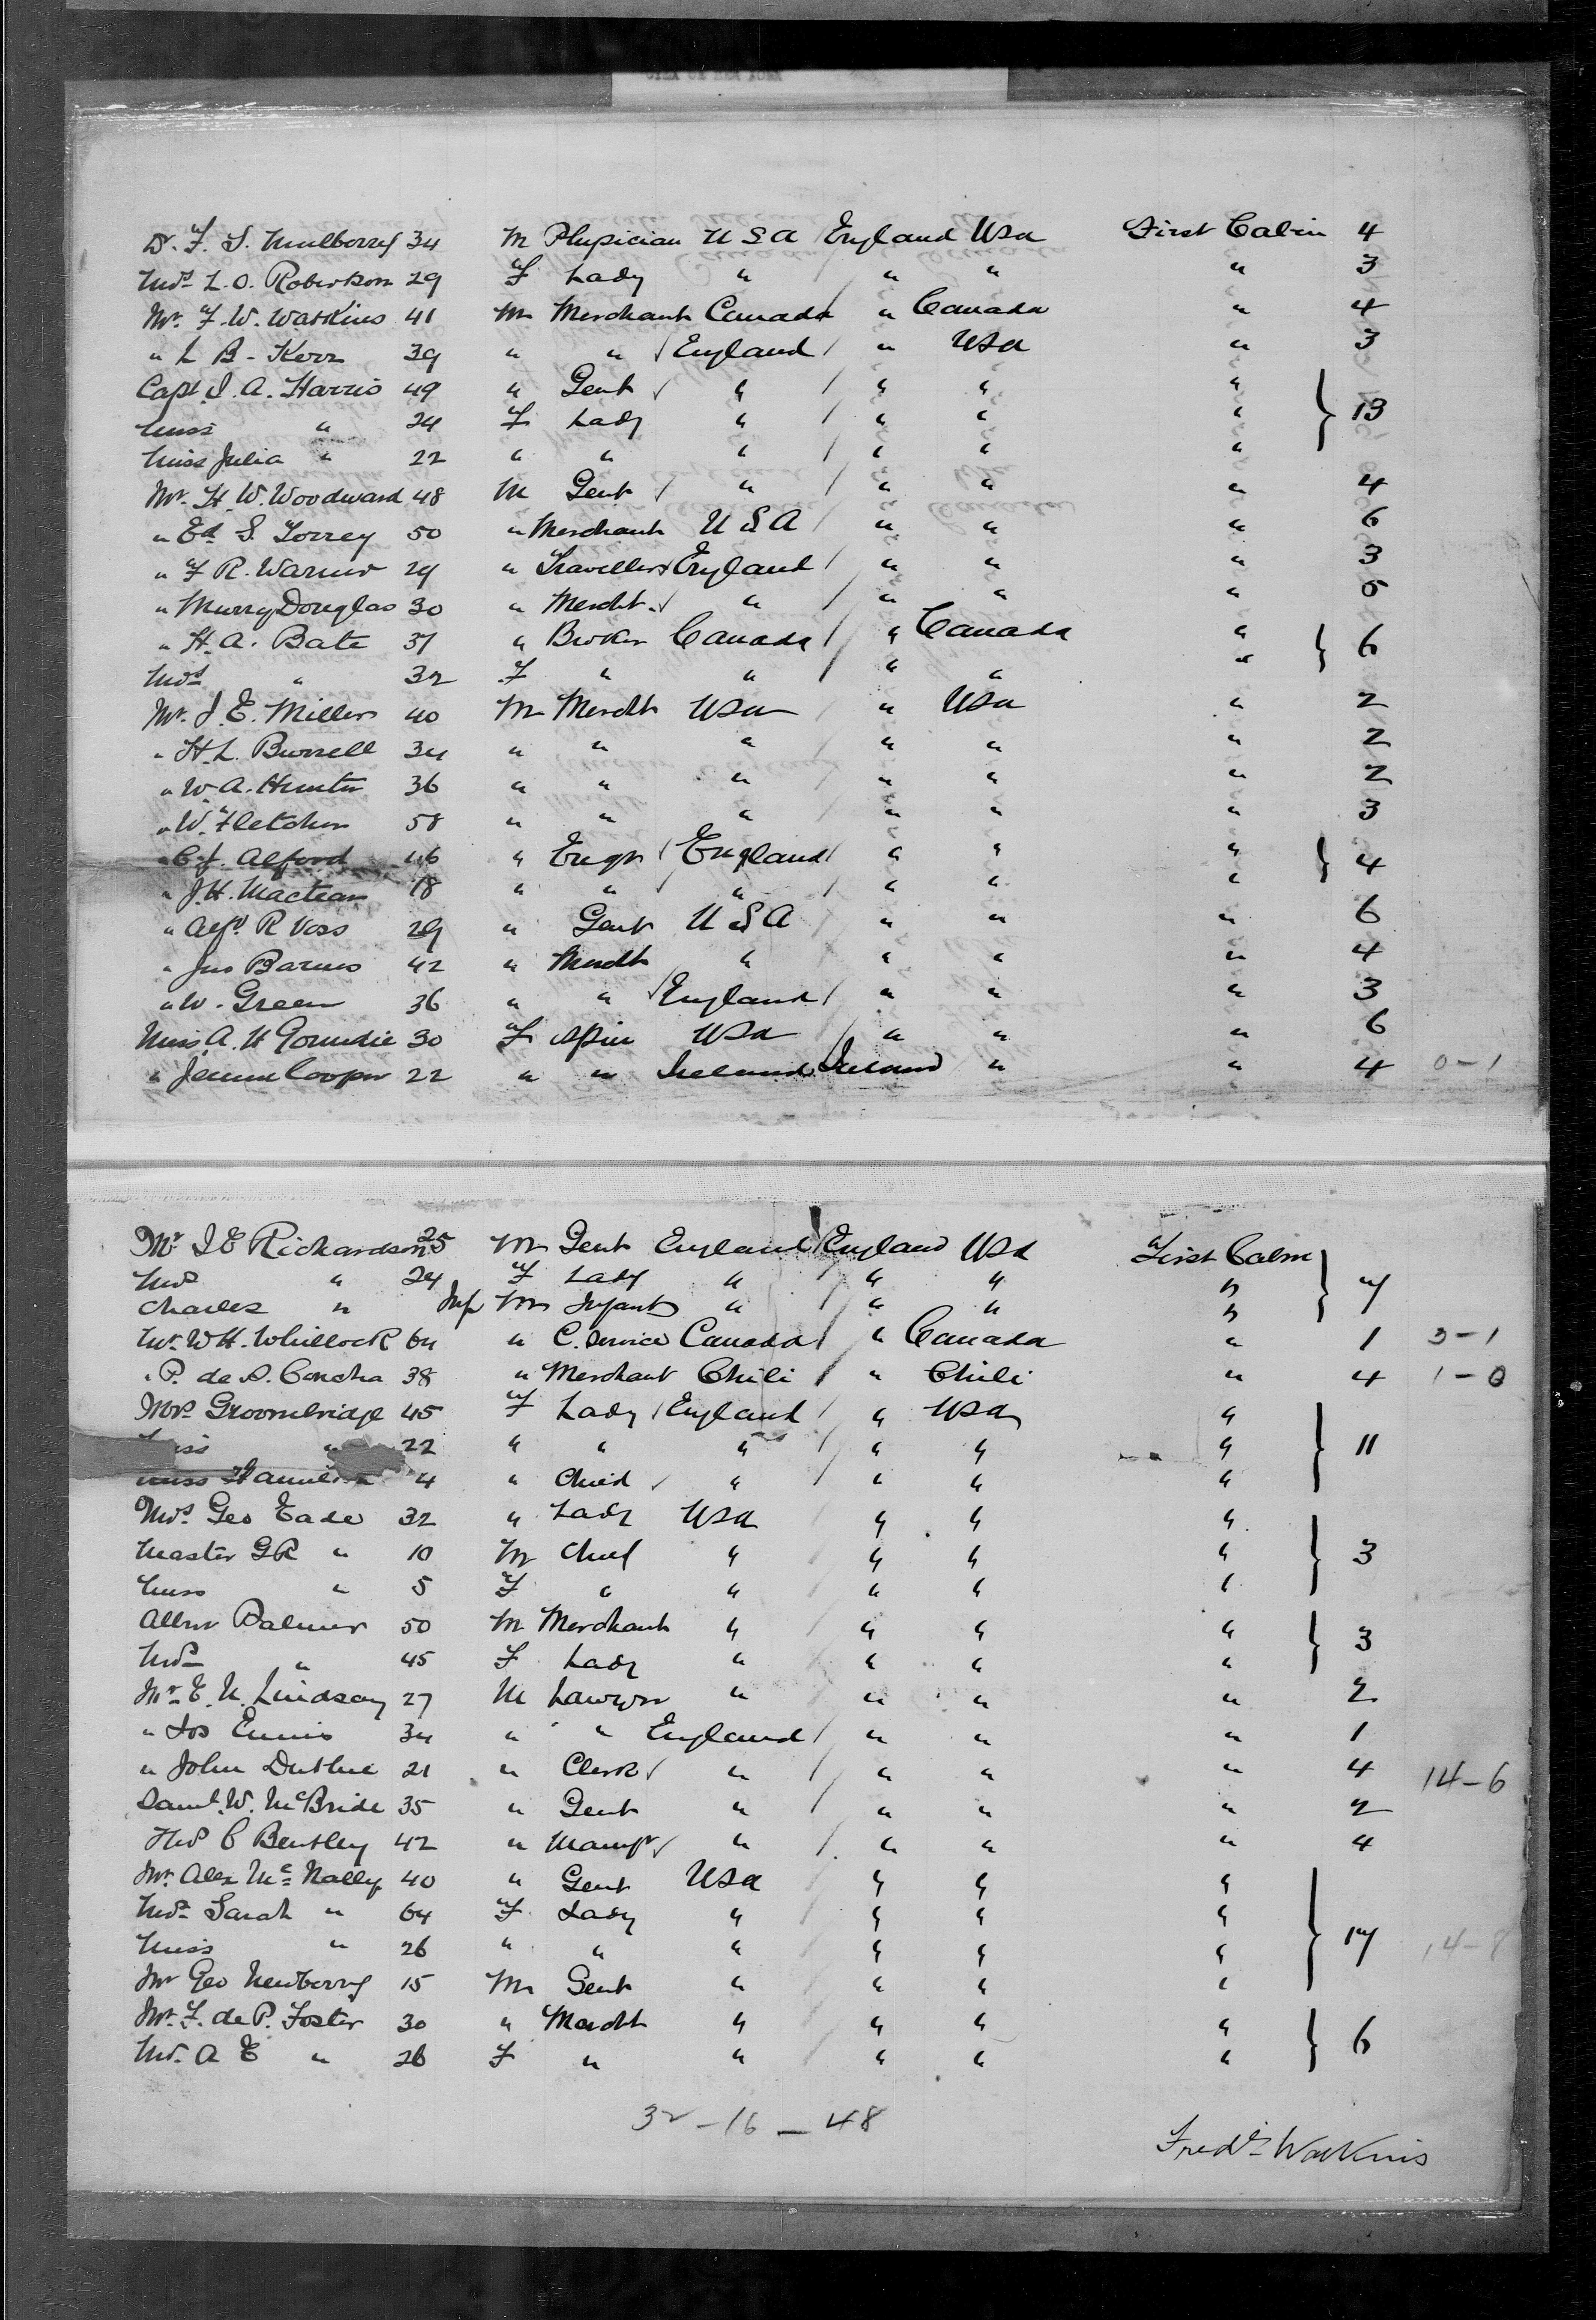 Dr. F. S. Mulberry 34 M Physician U S A England Usa First Cabin 4
Mrs. L. O. Robertson 29 F Lady " " " " 3
Mr. F. W. Watkins 41 M Merchant Canada " Canada " 4
" L B - Kerr 39 " " England " Usa " 3
Capt. J. A. Harris 49 " Gent " " " "
Miss " 24 F Lady " " " " 13
Miss Julia " 22 " " " " " "
Mr. H. W. Woodward 48 M Gent " " " " 4
" Ed S. Torrey 50 " Merchant U S A " " " 6
" F R. Warner 29 " Traveller England " " " 3
" Murry Douglas 30 " Mercht. " " " " 5
" H. A. Bate 37 " Broker Canada " Canada " 6
Mrs " 32 F " " " " "
Mr. J. E. Miller 40 M Mercht Usa " Usa " 2
" H. L. Burrell 34 " " " " " " 2
" W. A. Hunter 36 " " " " " " 2
" W. Fletcher 58 " " " " " " 3
" C. J. Alford 46 " Engr England " " " 4
" J. H. Mactear 18 " " " " " "
" Alfd. R Voss 29 " Gent U S A " " " 6
" Jno Barnes 42 " Mercht " " " " 4
" W. Green 36 " " England " " " 3
Miss A. H 30 F Spin Usa " " " 6
" Jennie Cooper 22 " " Ireland Ireland " " 4 0-1
Mr. J E Richardson 25 M Gent England England Usa First Cabin
Mrs " 24 F Lady " " " " 7
Charles " Inf M Infant " " " "
Mr. W H. Whillock 64 " C. Service Canada " Canada " 1 3-1
" P. de S. Concha 38 " Merchant Chili " Chili " 4 1-0
Mrs. Groombridge 45 F Lady England " Usa "
Miss " 22 " " " " " " 11
Miss 4 " Child " " " "
Mrs. Geo Eade 32 " Lady Usa " " "
Master G R " 10 M Child " " " " 3
Miss " 5 F " " " " "
Albert Palmer 50 M Merchant " " " " 3
Mrs " 45 F Lady " " " "
Mr. E. N. Lindsay 27 M Lawyer " " " " 2
" Jos Ennis 34 " " England " " " 1
" John Duthie 21 " Clerk " " " " 4 14-6
Saml. W. McBride 35 " Gent " " " " 2
Thos C Bentley 42 " Manufr " " " " 4
Mr. Alex McNally 40 " Gent Usa " " "
Mrs. Sarah " 64 F Lady " " " "
Miss " 26 " " " " " " 17 14-8
Mr Geo Newberry 15 M Gent " " " "
Mr. F. de P. Foster 30 " Mercht " " " " 6
Mrs. A E " 26 F " " " " "
32-16-48
Fredk. Watkins